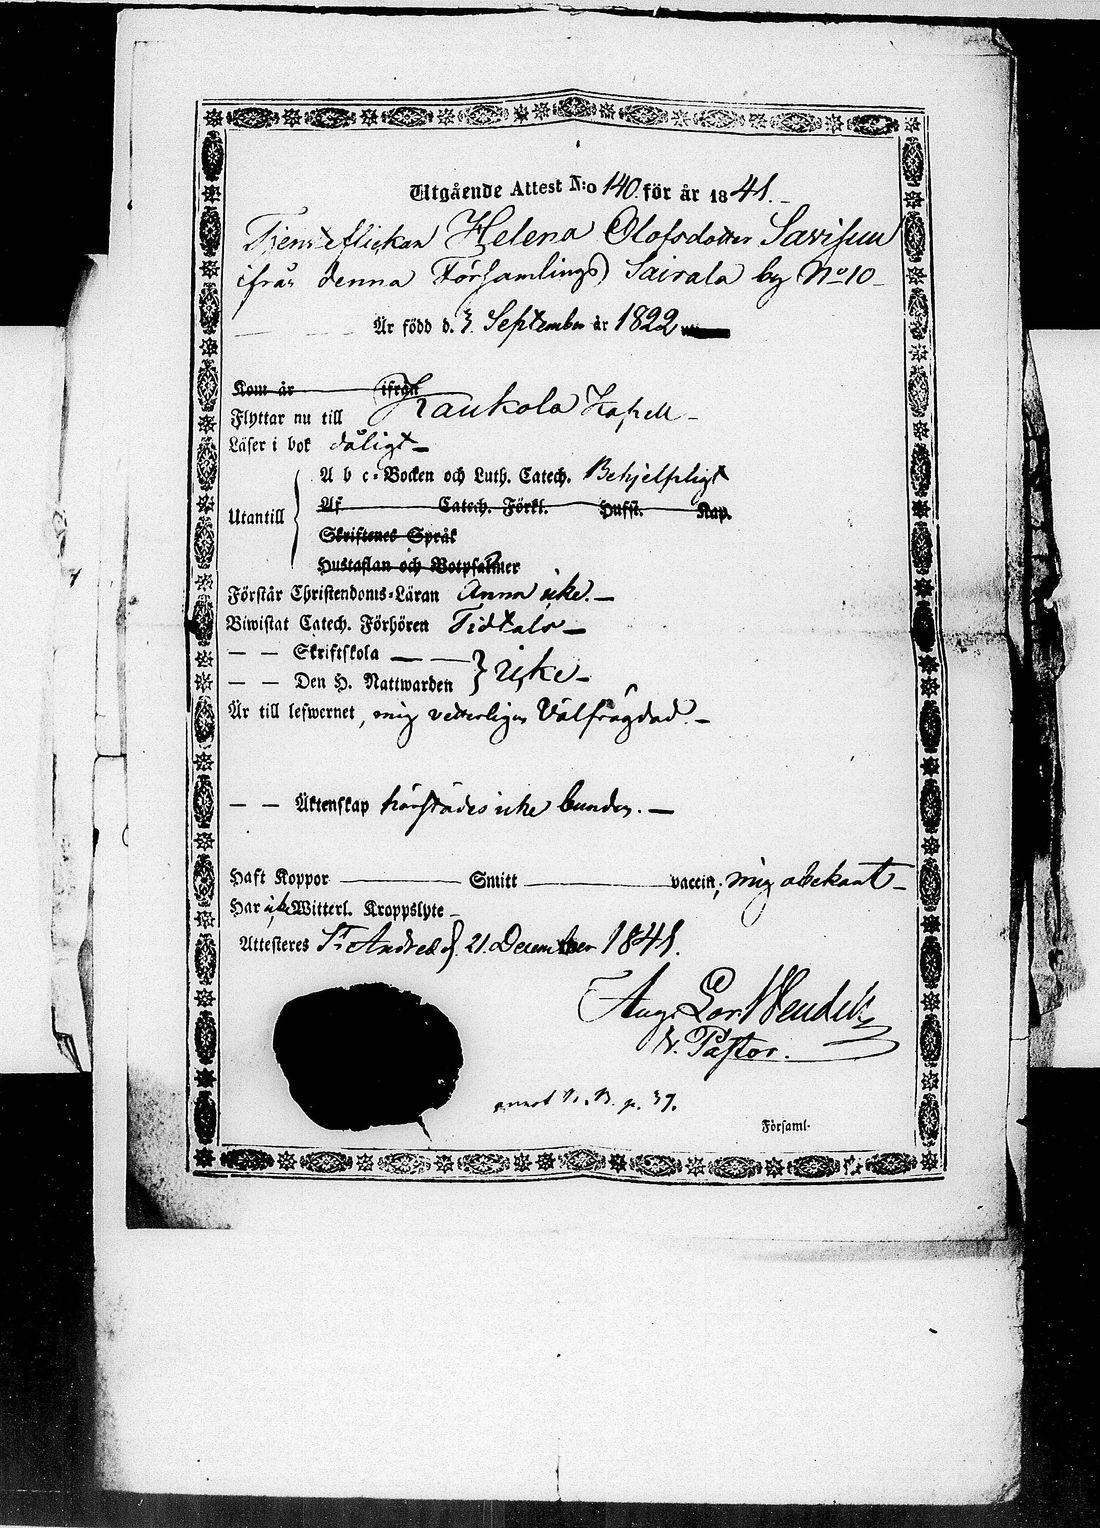 Utgående Attest N:o 140. för år 1841.
Tjensteflickan Helena Olofsdotter Savisuu
ifrån denna Församlings Sairala by No 10
Är född d. 3 September år 1822
Kom år ifrån
Flyttar nu till Kaukola Kapell
Läser i bok dåligt
A b c-Bocken och Luth. Catech. Behjelpligt
Utantill Af Catech. Förkl. Hufst. Kap.
Skriftenes Språk
Hustaflan och Botpsalmer
Förstår Christendoms-Läran ännu icke.
Biwistat Catech. Förhören Tidtals
— — Skriftskola
— — Den H. Nattwarden } icke
Är till lefwernet, mig vetterligen Välfrägdad.
— — Äktenskap härstädes icke bunden.
Haft Koppor Smitt vaccin; mig obekant
Har icke Witterl. Kroppslyte
Attesteres St Andreæ d. 21. December 1841.
Aug. Lor. Wendell
V. Pastor.
annot p. 37.
Församl.